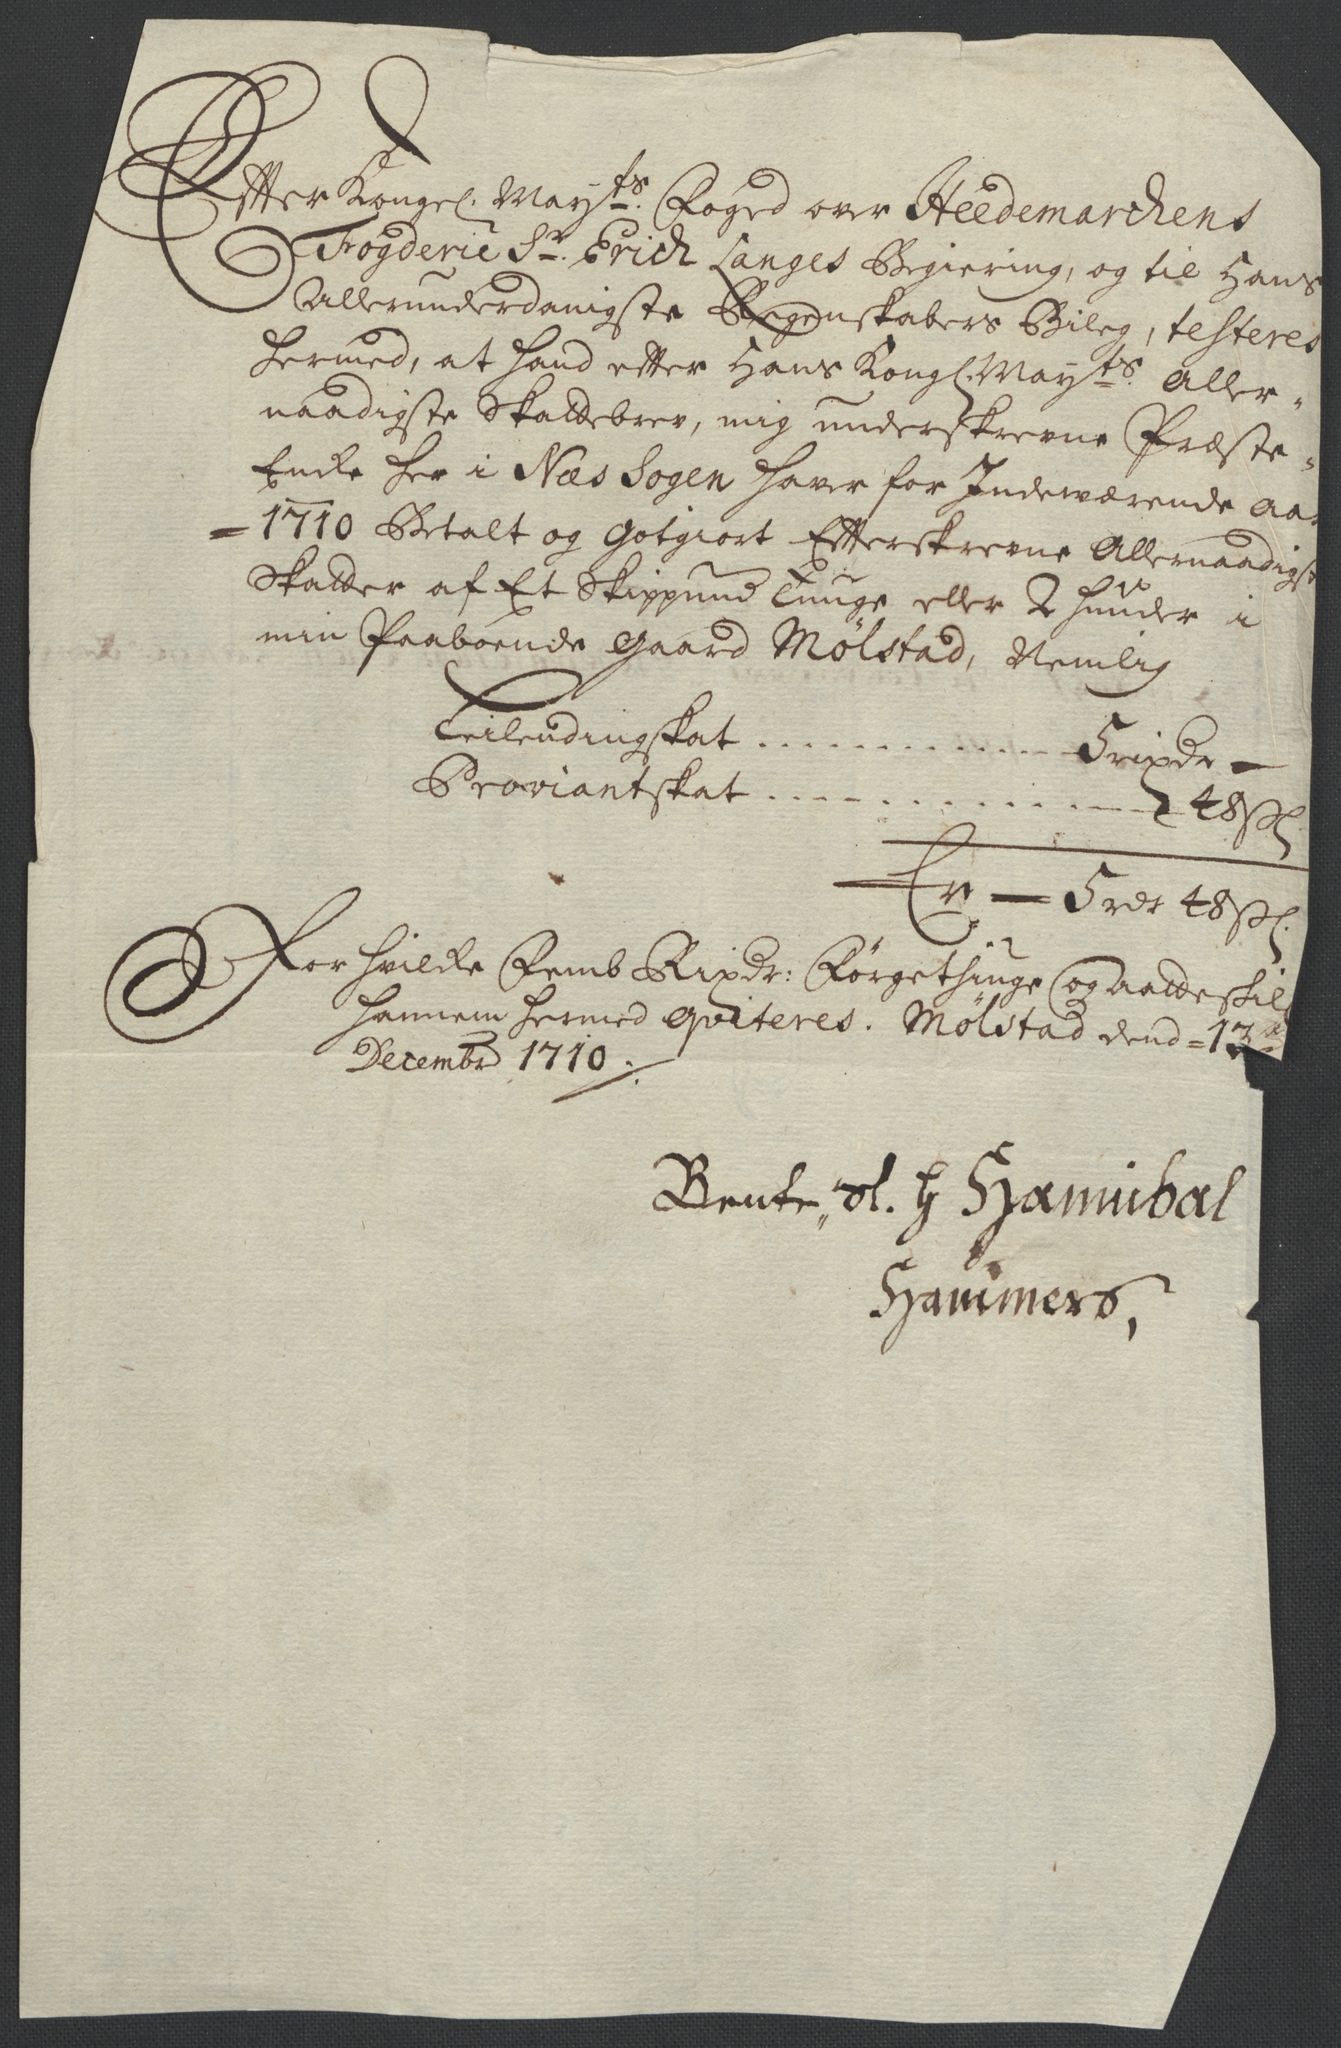 Efter Kongel. Mayts. Foged over Heedemarckens
Fogderie Sr. Erich Langes Begiering, og til Hans
Allerunderdanigste Regenskabers Bileg, testeres
hermed, at hand efter Hans Kongl. Mayts. Aller-
naadigste Skattebrev, mig underskrevne Præste-
Encke her i Næs Sogen haver for Indeværende Aar
1710 Betalt og Gotgiort Efterskrevne Allernaadigst
Skatter af Et Skippund Tunge eller 2 Huder i
min Paaboende Gaard Mølstad, Nemlig
Leilendingskat . . . . . . . . . . 5 rixdr —
Proviantskat . . . . . . . . . . 48 sk
Er — 5 rdr 48 sk
For hvilcke Femb Rixdr: Førgethiuge og aatte skil
hannem hermed qviteres. Mølstad dend 13
Decembr 1710
Bente Sl. H Hannibal
Hammers,